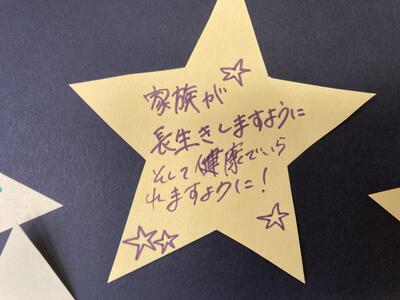 家族が
長生きしますように
そして健康でいら
れますように!